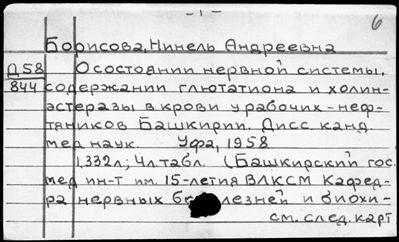 - 1 -
6
Борисова, Нинель Андреевна
Д58 О состоянии нервной системы,
844 содержании глютатиона и холин-
эстеразы в крови у рабочих-неф-
тяников Башкирии. Дисс. канд.
мед наук. Уфа, 1958
1,332л; 4л.табл. (Башкирский гос.
мед ин-т им. 15-летия ВЛКСМ Кафед-
ра нервных болезней и биохи-
см. след. карт